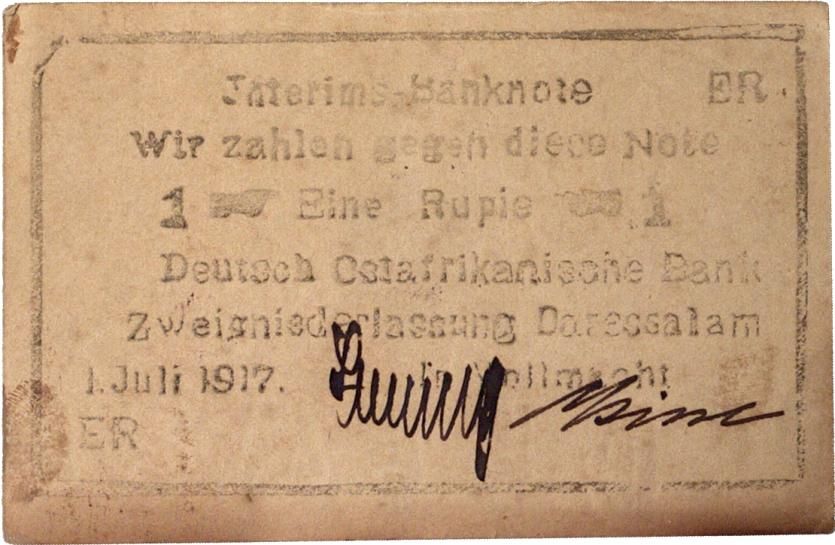 Jnterims-Banknote ER
Wir zahlen gegen diese Note
1 Eine Rupie 1
Deutsch Ostafrikanische Bank
Zweigniederlassung Daressalam
1. Juli 1917. In Vollmacht
ER